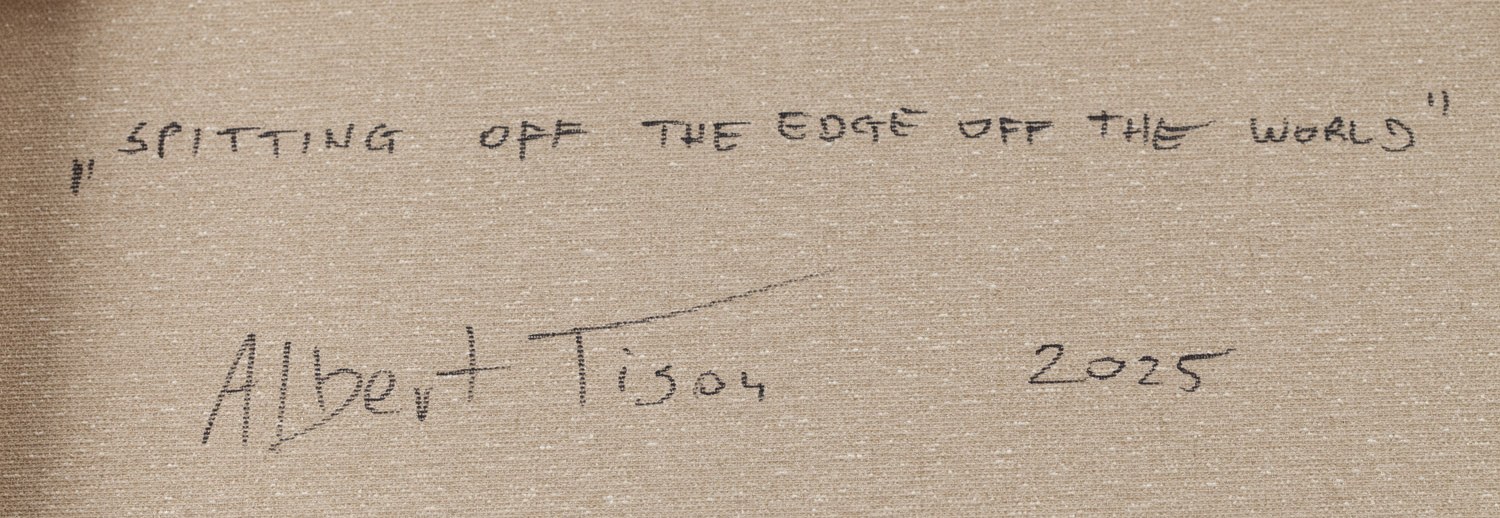 „SPITTING OFF THE EDGE OFF THE WORLD"
Albert Tison 2025